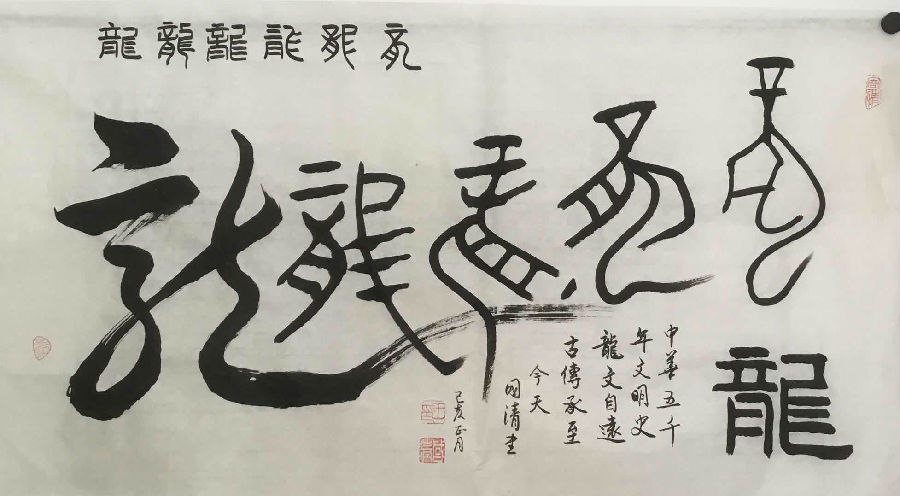 龍龍龍龍龍龍
龍龍龍龍龍
龍
中華五千
年文明史
龍文自遠
古傳承至
今天
國清書
己亥正月